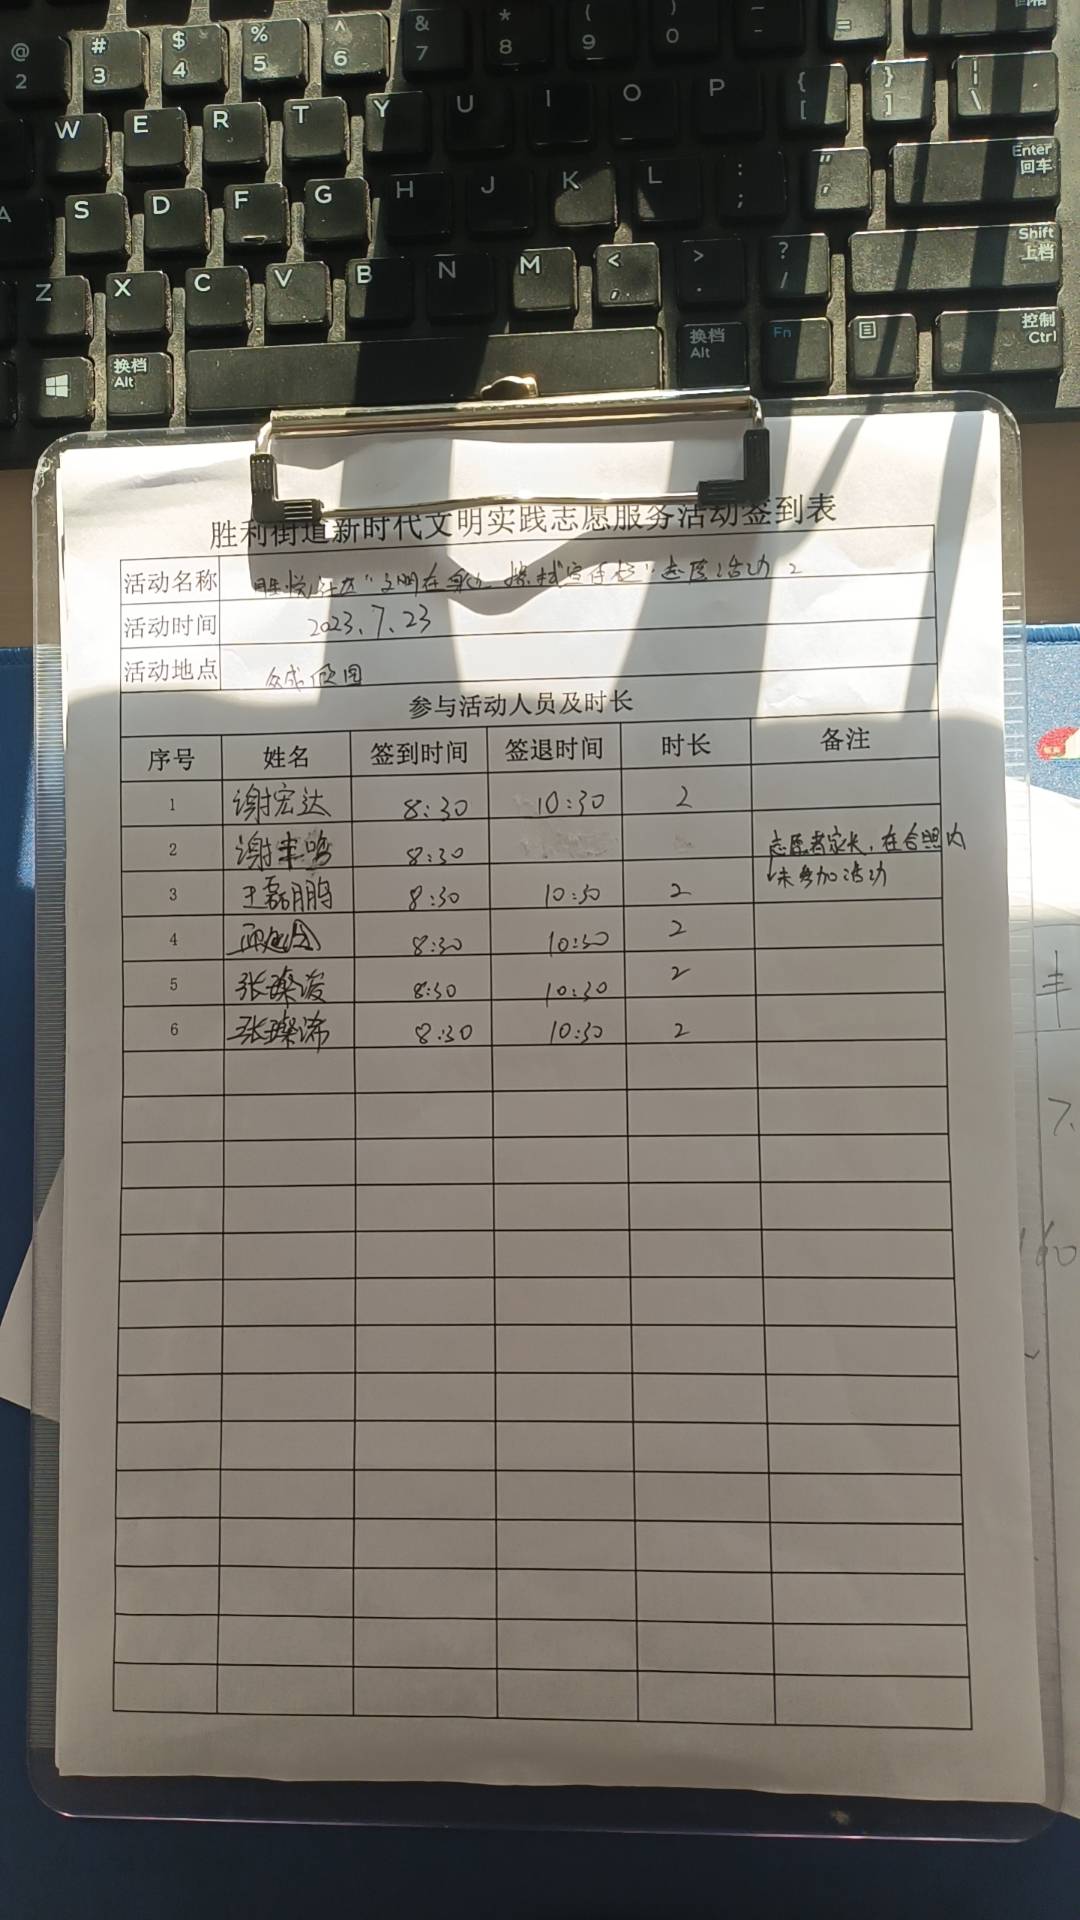 @ # $ % ^ & * ( ) _ +
2 3 4 5 6 7 8 9 0 - =
W E R T Y U I O P { [ } ] | \
A S D F G H J K L : ; " ' Enter 回车
Z X C V B N M < , > . ? / Shift 上档
换档 Alt 换档 Alt Fn 控制 Ctrl
胜利街道新时代文明实践志愿服务活动签到表
活动名称 胜悦社区“文明在身边、擦拭宣传栏”志愿活动 2
活动时间 2023.7.23
活动地点 众成 园
参与活动人员及时长
序号 姓名 签到时间 签退时间 时长 备注
1 谢宏达 8:30 10:30 2
2 谢丰鸣 8:30 志愿者家长,在合照内
未参加活动
3 王磊鹏 8:30 10:30 2
4 8:30 10:30 2
5 张璨 8:30 10:30 2
6 张璨浠 8:30 10:30 2
丰